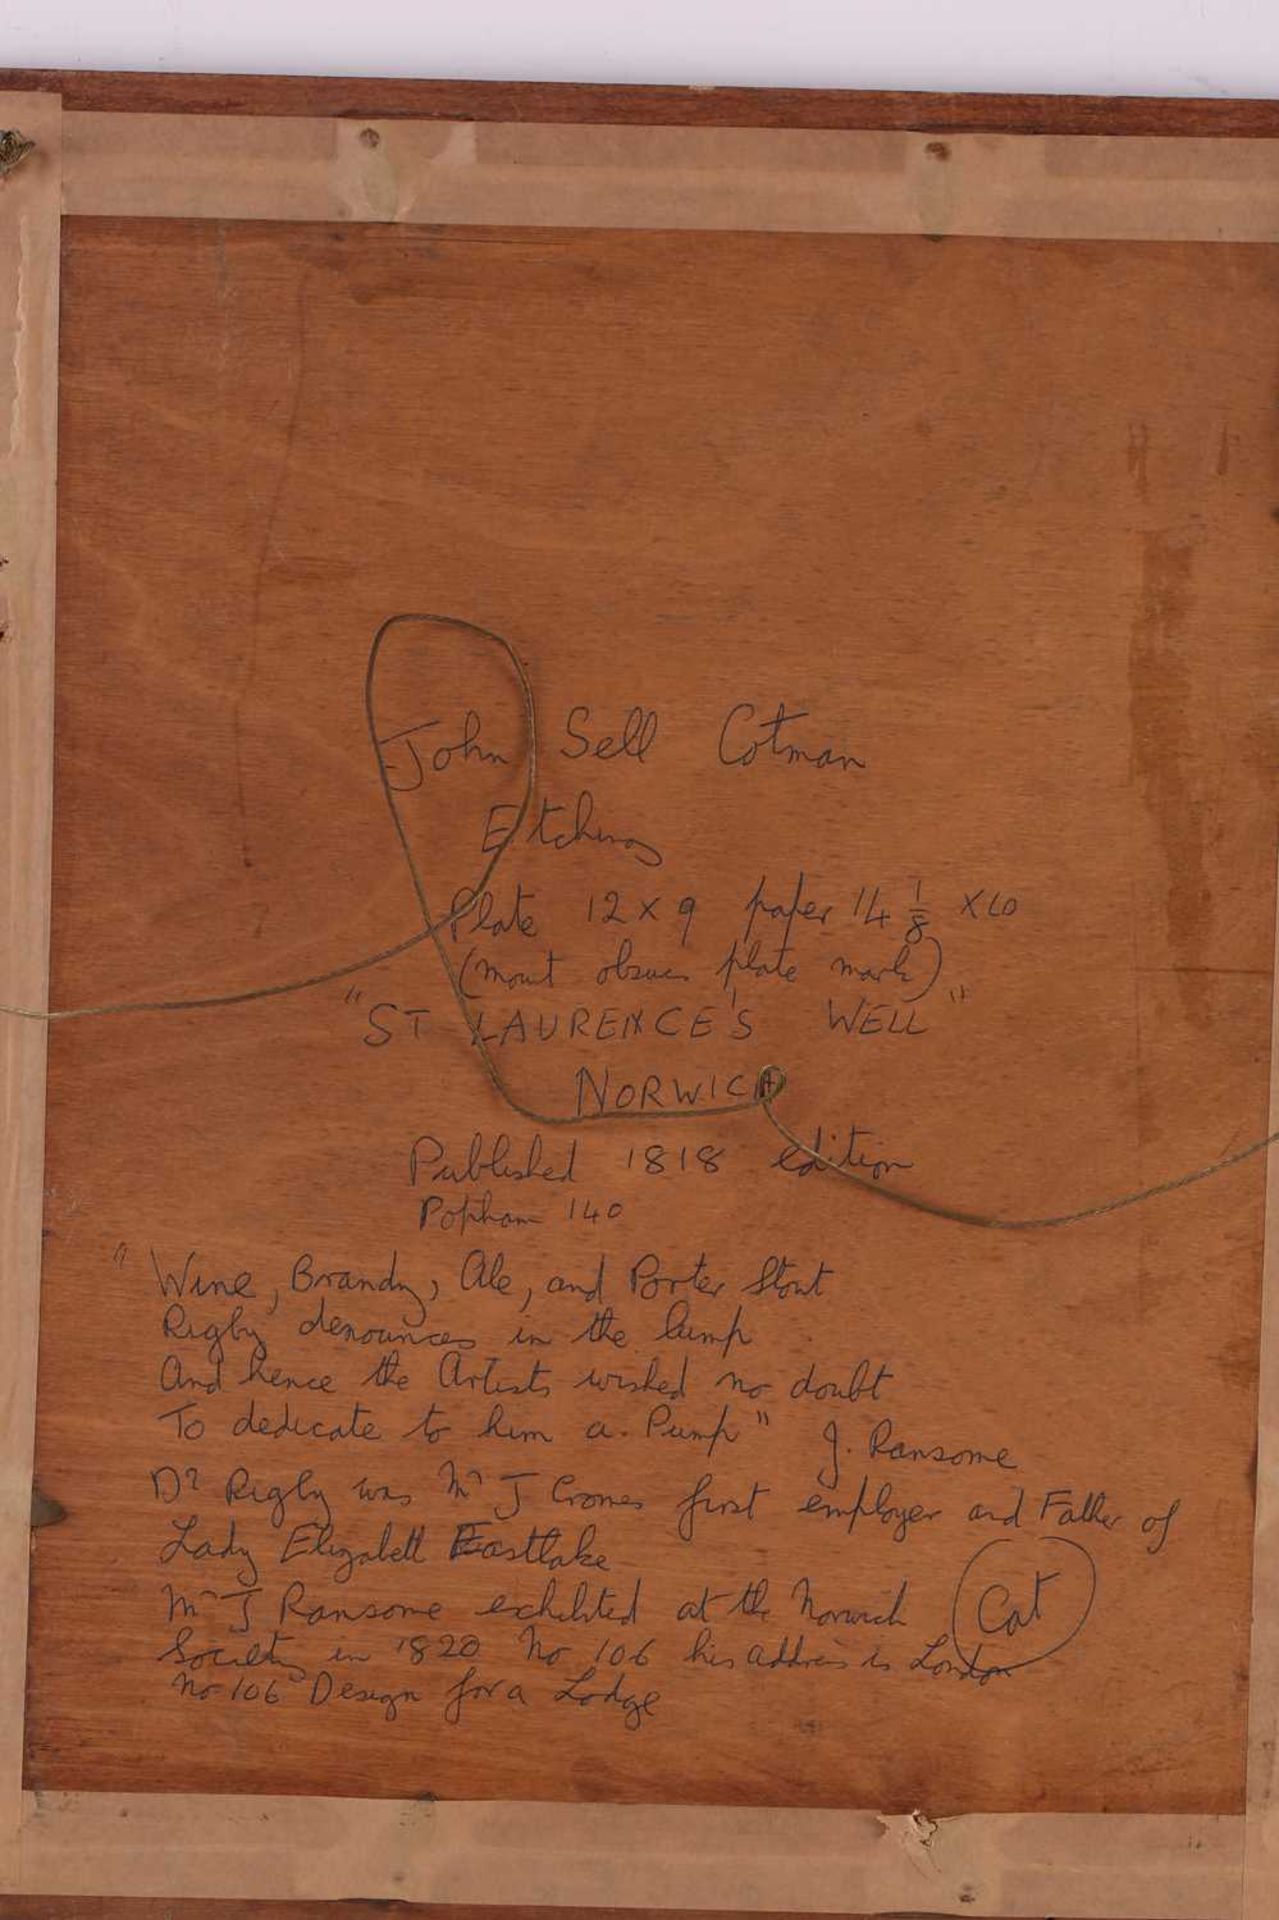 John Sell Cotman
Etching
Plate 12 x 9 paper 14 1/8 x 10
(mount obscures plate mark)
"ST LAURENCE'S WELL"
NORWICH
Published 1818 edition
Popham 140
"Wine, Brandy, Ale, and Porter Stout
Rigby denounces in the lump
And hence the Artists wished no doubt
To dedicate to him a Pump" J. Ransome
Dr Rigby was Mr J Cromes first employer and Father of
Lady Elizabeth Eastlake
Mr J Ransome exhibited at the Norwich Cat
Society in 1820 No 106 his address is London
No 106 Design for a Lodge